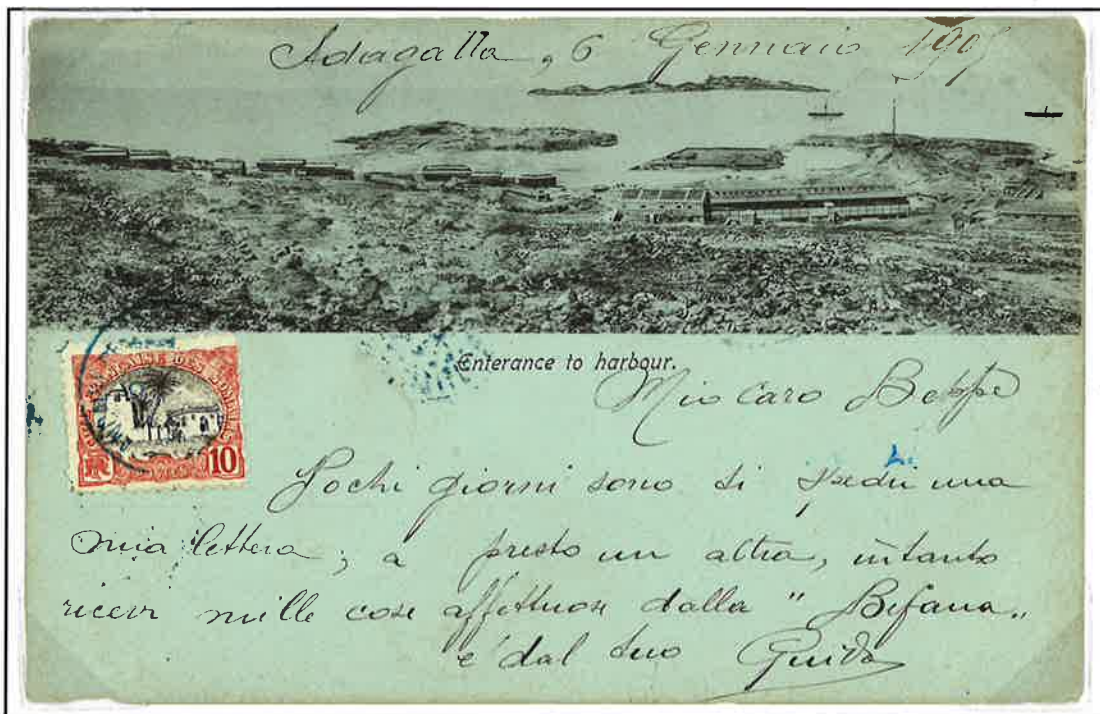 Adagalla, 6 Gennaio 190
Enterance to harbour.
Mio caro Beppe
CÔTE FRANÇAISE DES SOMALIS
RF 10
Pochi giorni sono ti spedii una
mia lettera; a presto un altra, intanto
ricevi mille cose affettuose dalla "Befana"
e dal tuo Guido